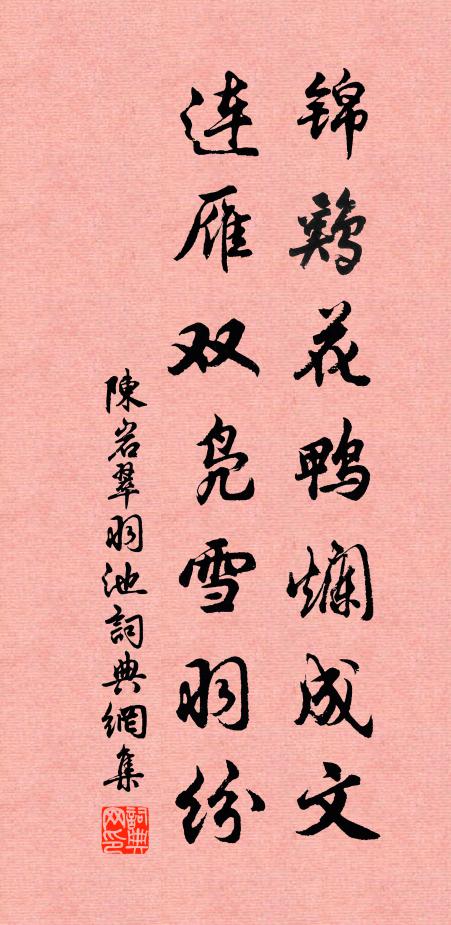 锦鷄花鸭斓成文
连雁双凫雪羽纷
陳岩翠羽池詞典網集
詞典网印